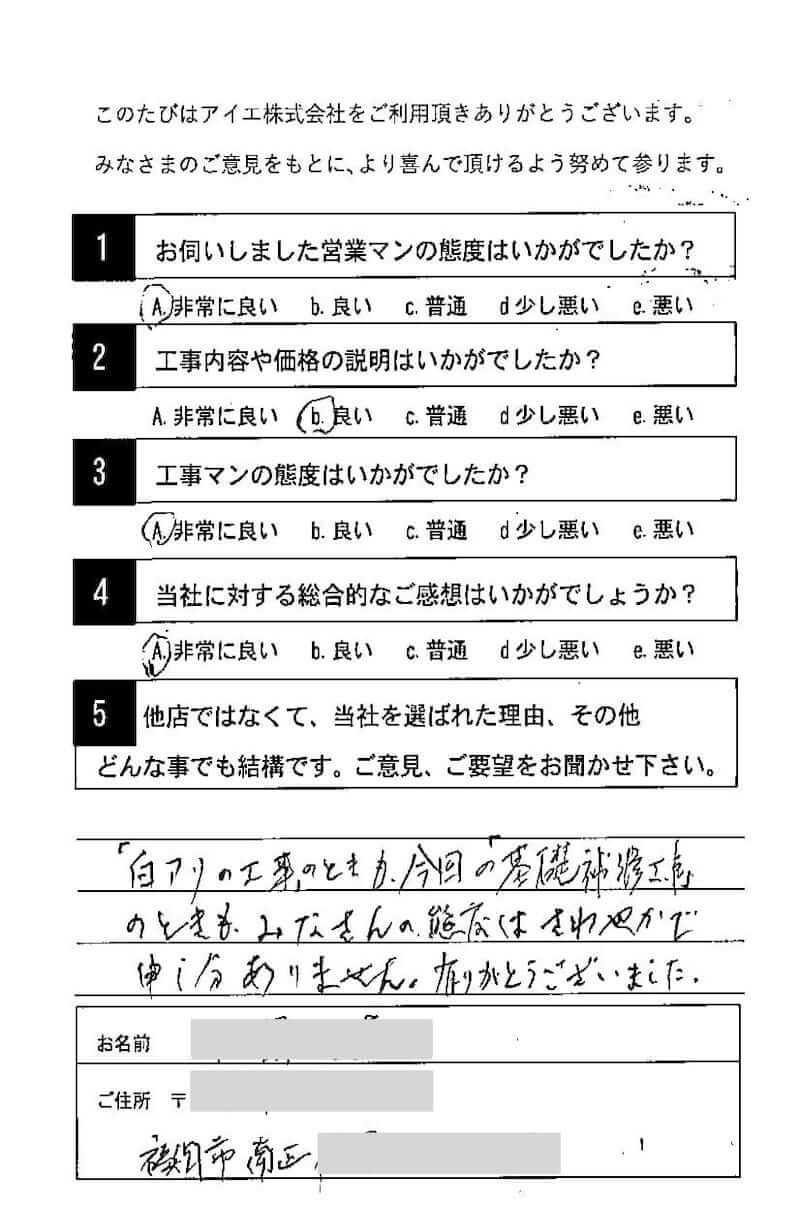 このたびはアイエ株式会社をご利用頂きありがとうございます。
みなさまのご意見をもとに、より喜んで頂けるよう努めて参ります。
1 お伺いしました営業マンの態度はいかがでしたか？
A. 非常に良い b. 良い c. 普通 d 少し悪い e. 悪い
2 工事内容や価格の説明はいかがでしたか？
A. 非常に良い b. 良い c. 普通 d 少し悪い e. 悪い
3 工事マンの態度はいかがでしたか？
A. 非常に良い b. 良い c. 普通 d 少し悪い e. 悪い
4 当社に対する総合的なご感想はいかがでしょうか？
A. 非常に良い b. 良い c. 普通 d 少し悪い e. 悪い
5 他店ではなくて、当社を選ばれた理由、その他
どんな事でも結構です。ご意見、ご要望をお聞かせ下さい。
「白アリの工事」のときも、今回の「基礎補修工事」
のときも、みなさんの態度はさわやかで
申し分ありません。有りがとうございました。
お名前
ご住所 〒
福岡市南区